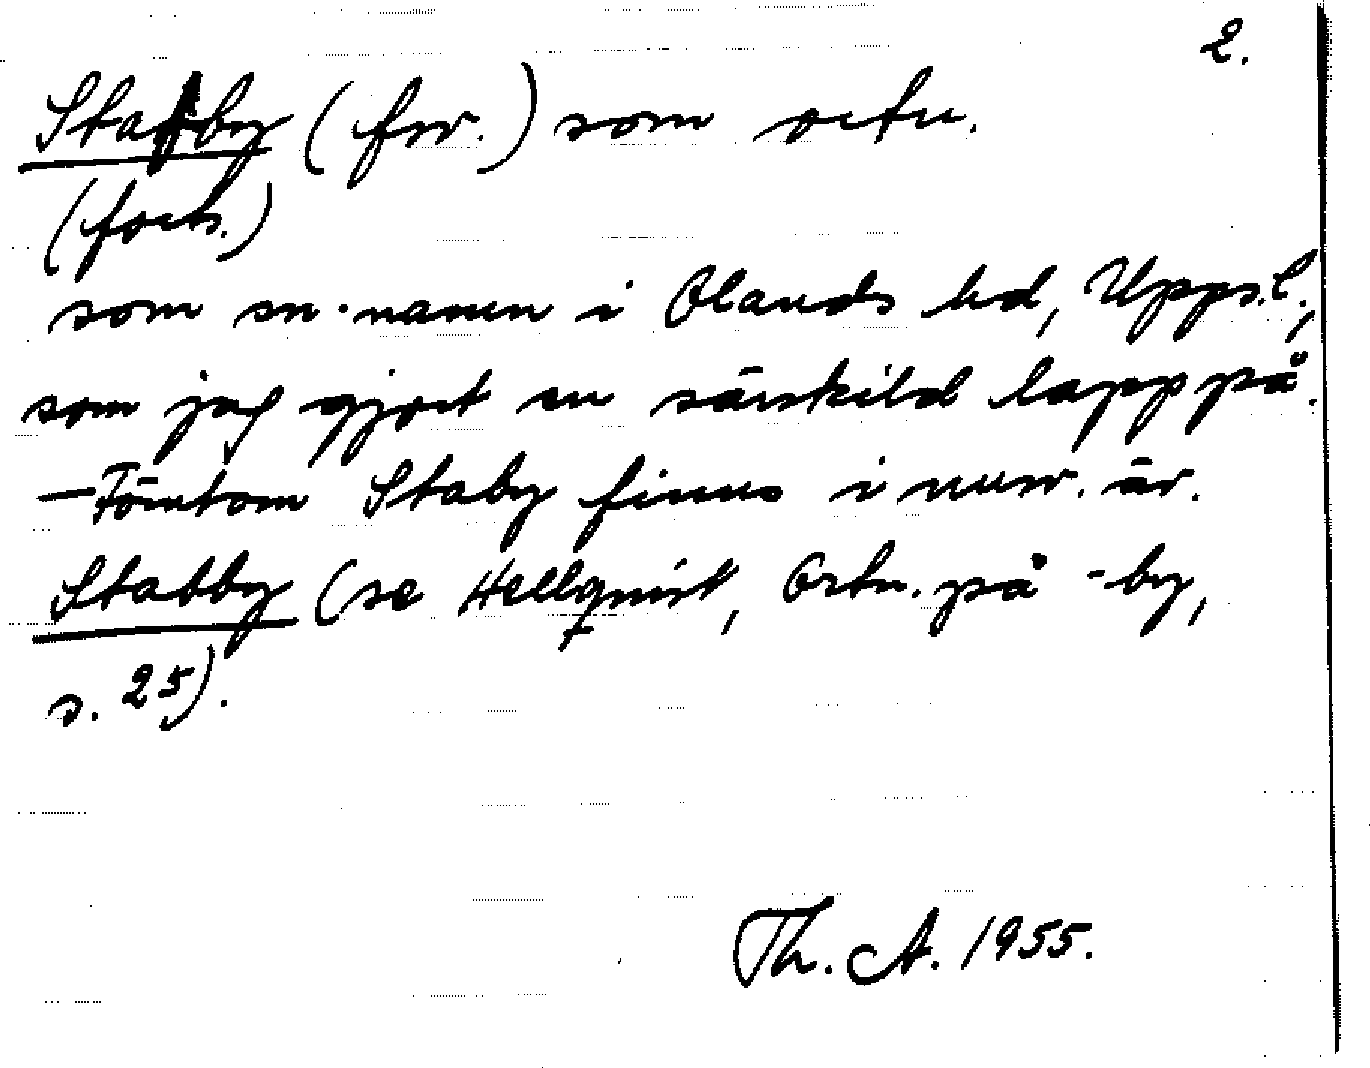 2.
Stabby (fsv.) som ortn.
(forts.)
som sn-namn i Olands hd, Upps.l.,
som jag gjort en särskild lapp på.
— Förutom Staby finns i nusv. är.
Stabby (se Hellquist, Ortn. på -by,
s. 25).
Th. A. 1955.